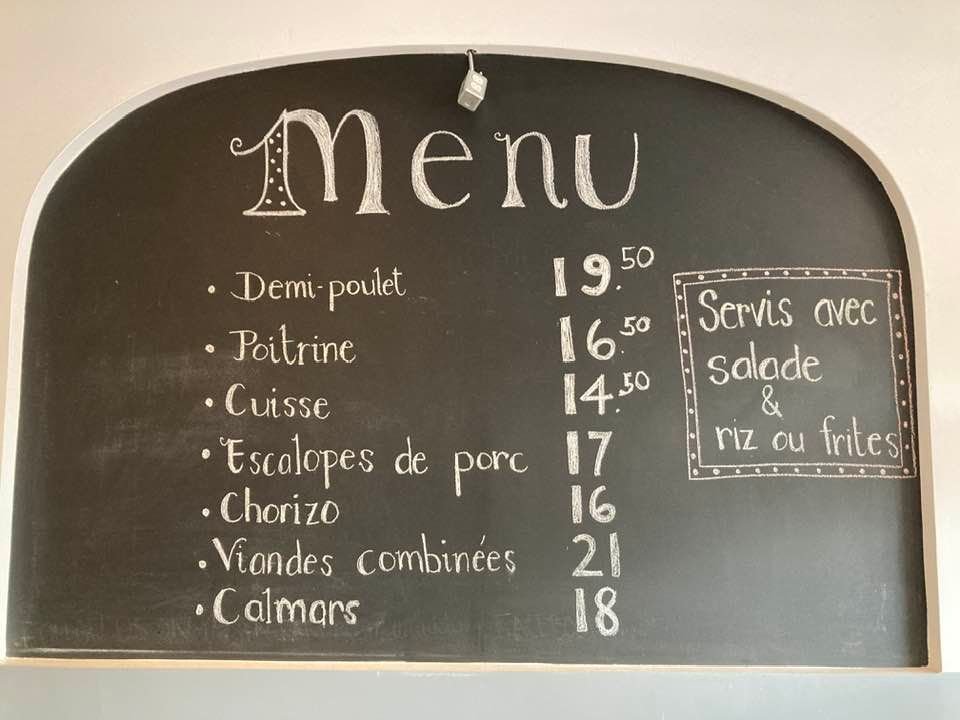 Menu
• Demi-poulet 19.50
• Poitrine 16.50
• Cuisse 14.50
• Escalopes de porc 17
• Chorizo 16
• Viandes combinées 21
• Calmars 18
Servis avec
salade
&
riz ou frites